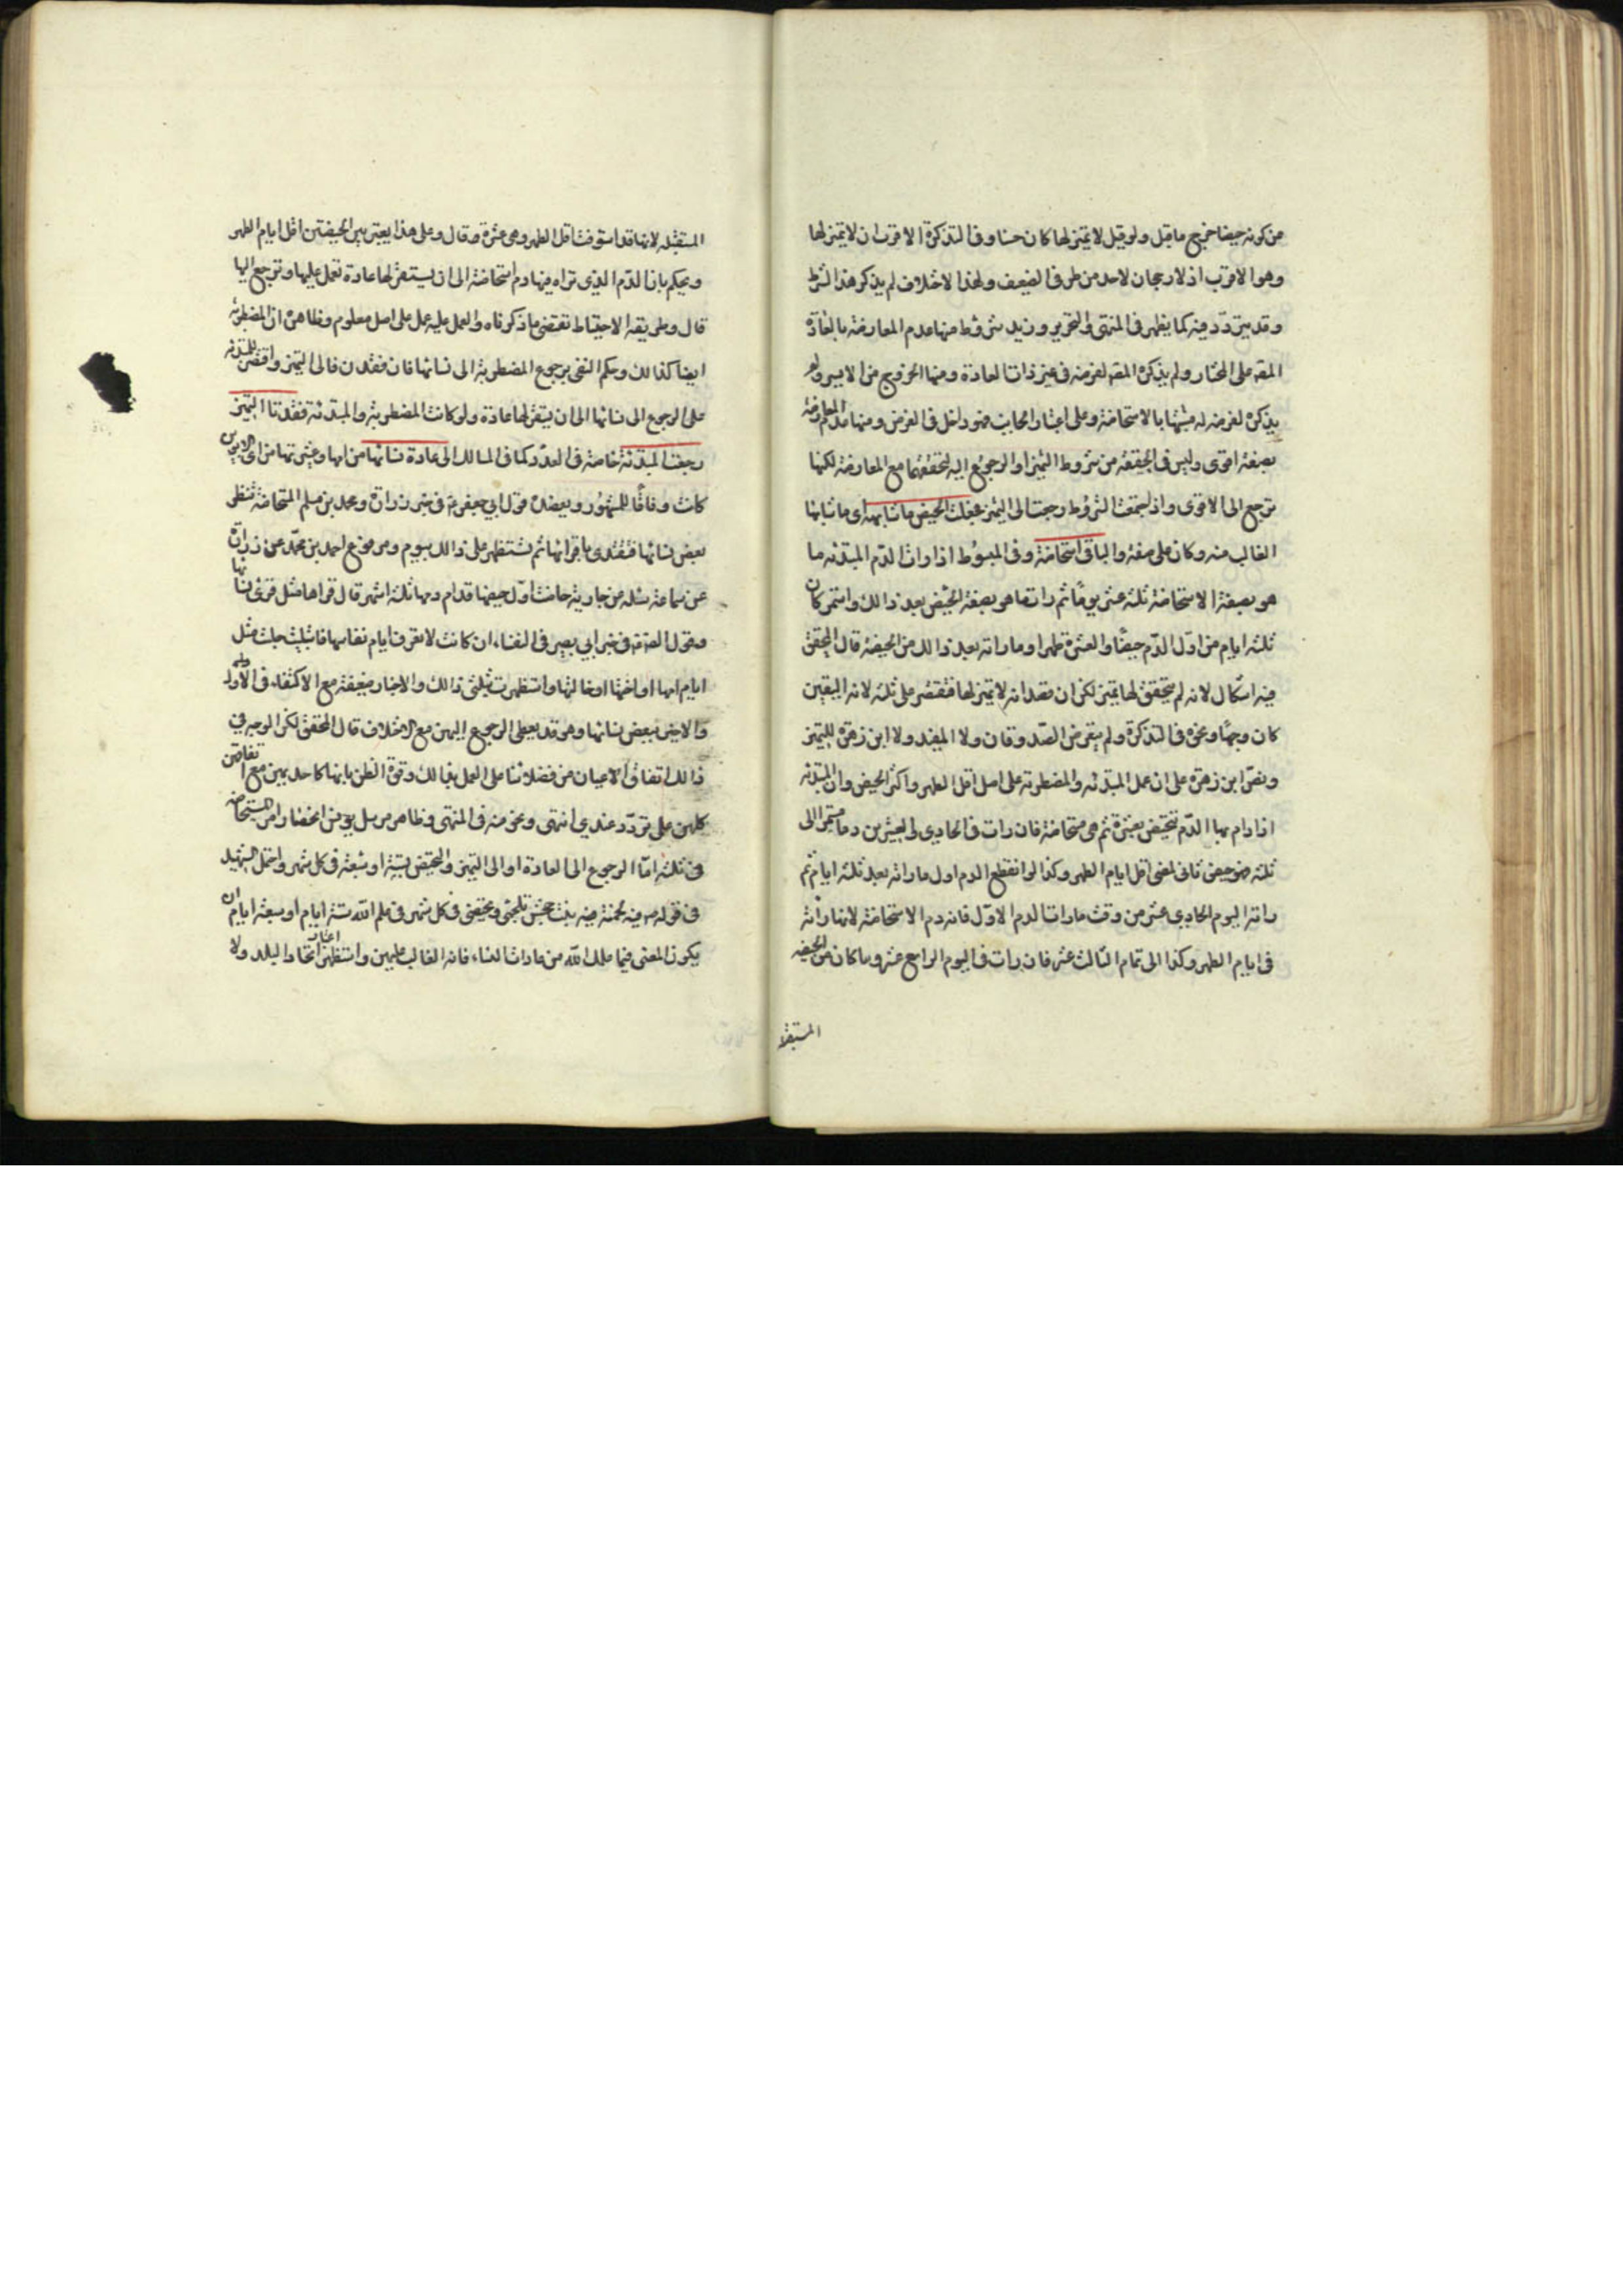 من كونه حيضا خرج ماقبل ولو قيل لا تميز لها كان حسنا و في التذكرة الاقرب ان لا تميز لها
وهو الاقرب اذ لا رجحان لاحد من طرفى الضعيف ولهذا الاختلاف لم يذكر هذا الشرط
وقد يتردد فيه كما يظهر في المنتهى والتحرير و زيد شروط منها عدم المعارضة بالعادة
المقه على المختار ولم يذكره المقه لفرضه فى غير ذات العادة ومنها الخروج من الايسر ولم
يذكره لفرضه له مشتبها بالاستحاضة وعلى اعتبار الجانب فهو داخل فى الفرض ومنها عدم المعارضة
بصفة اقوى وليس فى الحقيقة من شروط التميز او الرجوع اليه لتحققهما مع المعارضة لكنها
ترجع الى الاقوى واذا اجتمعت الشروط رجعت الى التميز فجعلت الحيض ما شابهه اى ما شابها
الغالب منه وكان على صفة والباقى استحاضة وفى المبسوط اذا رات الدم المبتدئه ما
هو بصفة الاستحاضة ثلثة عشر يوما ثم رات ما هو بصفة الحيض بعد ذالك واستمر كان
ثلثه ايام من اول الدم حيضا والعشرة طهرا وما راته بعد ذالك من الحيضة قال المحقق
فيه اشكال لانه لم يتحقق لها تميز لكن ان قصد انه لا تميز لها فتقتصر على ثلثه لانه اليقين
كان وجها ونحوه فى التذكرة ولم يتعرض الصدوقان ولا المفيد ولا ابن زهرة للتميز
ونص ابن زهرة على ان عمل المبتدئه والمضطربه على اصل اقل الطهر واكثر الحيض وان المبتدئه
اذا دام بها الدم تتحيض بعشرة ثم هى مستحاضة فان رات فى الحادي والعشرين دما مستمرا الى
ثلثه فهو حيض ثانى لمضى اقل ايام الطهر وكذا لو انقطع الدم اول ما راته بعد ثلثه ايام ثم
راته اليوم الحادي عشر من وقت ما رات الدم الاول فانه دم الاستحاضة لانها راته
فى ايام الطهر وكذا الى تمام الثالث عشر فان رات فى اليوم الرابع عشر وما كان من الحيضه
المستقبله
المستقبله لانها قد استوفت اقل الطهر وهى عشرة وقال وعلى هذا يعتبر بين الحيضتين اقل ايام الطهر
ويحكم بان الدم الذي تراه فيها دم استحاضة الى ان يستقر لها عادة تعمل عليها و ترجع اليها
قال وطريقة الاحتياط تقتضى ما ذكرناه والعمل عليه عمل على اصل معلوم وظاهره ان المضطربة
ايضا كذالك وحكم التقى برجوع المضطربة الى نسائها فان فقدن فالى التميز واقتصر للمبتدئه
على الرجوع الى نسائها الى ان يستقر لها عادة ولو كانت المضطربة والمبتدئة فقدتا التميز
رجعت المبتدئة خاصة فى العدد كما فى المسالك الى عادة نسائها من امها وعشيرتها من اى الابوين
كانت وفاقا للمشهور و يعضده قول ابي جعفر ع فى خبر زرارة ومحمد بن مسلم المستحاضة تنظر
بعض نسائها فتقتدى باقرائها ثم تستظهر على ذالك بيوم ومرفوع احمد بن محمد عن زرارة
عن سماعة سئله من جارية حاضت اول حيضها فدام دمها ثلثه اشهر قال قراها مثل قرء نسائها
وقول الصادق فى خبر ابي بصير فى النفساء ان كانت لا تعرف ايام نفاسها فابتليت جلست مثل
ايام امها او اختها او خالتها واستظهرت بثلثى ذالك والاخبار ضعيفة مع الاكتفاء فى الاول
والاخير ببعض نسائها وهو قد يعطى الرجوع اليهن مع الاختلاف قال المحقق لكن الوجه في
ذالك اتفاق الاعيان من فضلائنا على العمل بذالك وقوة الظن بانها كاحديهن مع تعارض
كلهن على تردد عندي انتهى ونحو منه فى المنتهى وظاهر مرسل يونس انحصار امر المستحاضة
فى ثلثة اما الرجوع الى العادة او الى التميز والتحيض بستة او سبعة فى كل شهر واحتمل الشهيد
فى قوله ص فيه لحمنة بنت جحش تلجمى وتحيضى فى كل شهر فى علم الله ستة ايام او سبعة ايام ان
يكون المعنى فيما علمك الله من عادات النساء فانه الغالب عليهن واستظهر اعتبار اتحاد البلد ولا